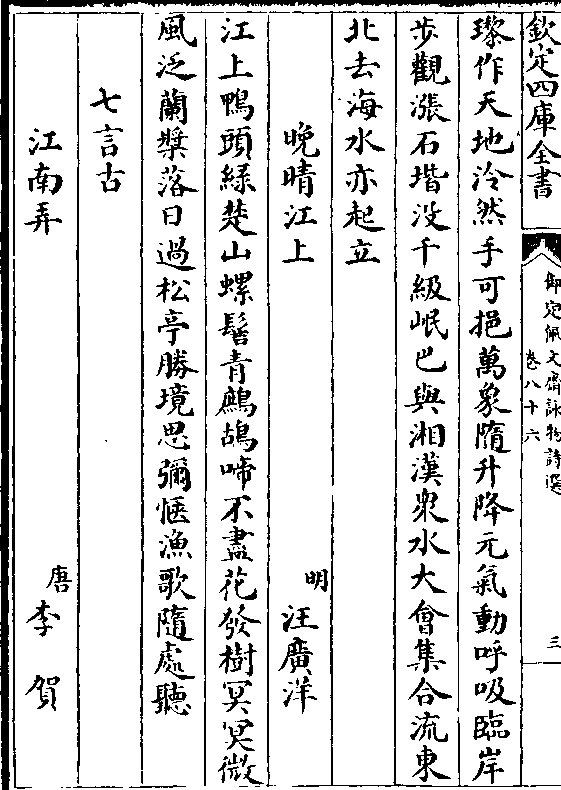 欽定四庫全書
御定佩文齋詠物詩選
卷八十六
三
瓈作天地泠然手可挹萬象隨升降元氣動呼吸臨岸
步觀漲石堦没千級岷巴與湘漢衆水大會集合流東
北去海水亦起立
晚晴江上
明
汪廣洋
江上鴨頭綠楚山螺髻青鷓鴣啼不盡花發樹冥冥微
風泛蘭槳落日過松亭勝境思彌愜漁歌隨處聽
七言古
江南弄
唐
李賀